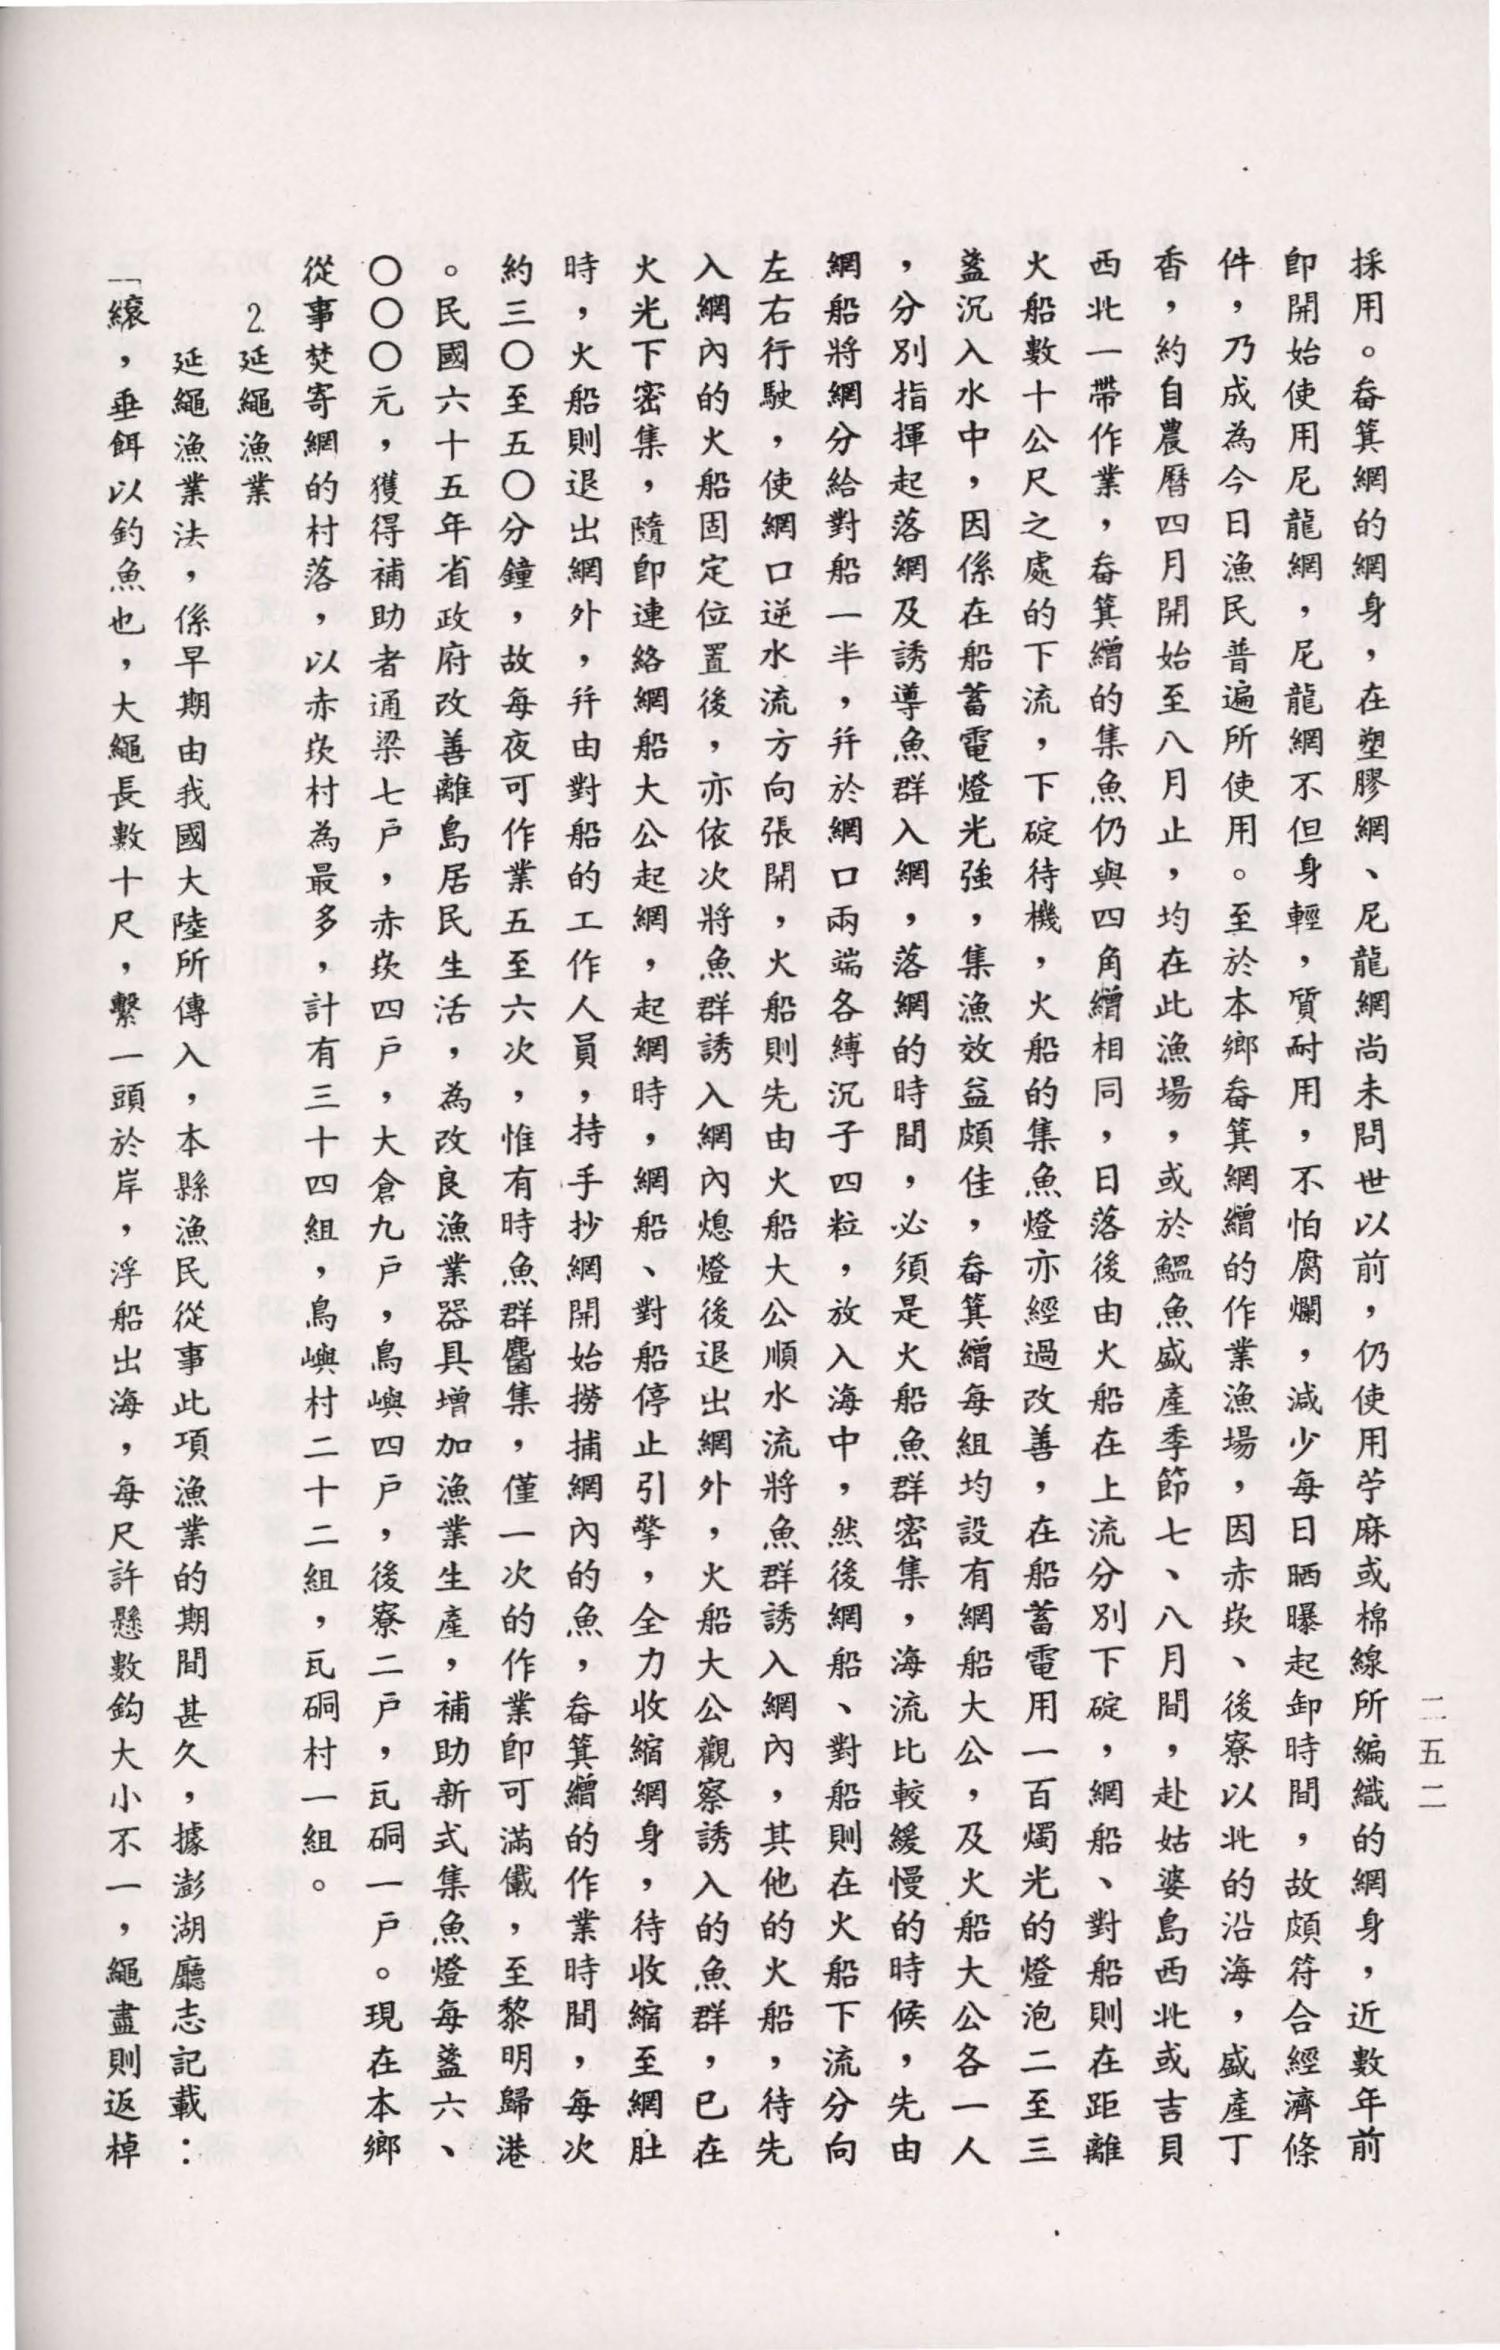 二五二
採用。畚箕網的網身，在塑膠網、尼龍網尚未問世以前，仍使用苧麻或棉線所編織的網身，近數年前
即開始使用尼龍網，尼龍網不但身輕，質耐用，不怕腐爛，減少每日晒曝起卸時間，故頗符合經濟條
件，乃成為今日漁民普遍所使用。至於本鄉畚箕網繒的作業漁場，因赤崁、後寮以北的沿海，盛產丁
香，約自農曆四月開始至八月止，均在此漁場，或於鰮魚盛產季節七、八月間，赴姑婆島西北或吉貝
西北一帶作業，畚箕繒的集魚仍與四角繒相同，日落後由火船在上流分別下碇，網船、對船則在距離
火船數十公尺之處的下流，下碇待機，火船的集魚燈亦經過改善，在船蓄電用一百燭光的燈泡二至三
盞沉入水中，因係在船蓄電燈光強，集漁效益頗佳，畚箕繒每組均設有網船大公，及火船大公各一人
，分別指揮起落網及誘導魚群入網，落網的時間，必須是火船魚群密集，海流比較緩慢的時候，先由
網船將網分給對船一半，幷於網口兩端各縛沉子四粒，放入海中，然後網船、對船則在火船下流分向
左右行駛，使網口逆水流方向張開，火船則先由火船大公順水流將魚群誘入網內，其他的火船，待先
入網內的火船固定位置後，亦依次將魚群誘入網內熄燈後退出網外，火船大公觀察誘入的魚群，已在
火光下密集，隨即連絡網船大公起網，起網時，網船、對船停止引擎，全力收縮網身，待收縮至網肚
時，火船則退出網外，幷由對船的工作人員，持手抄網開始撈捕網內的魚，畚箕繒的作業時間，每次
約三〇至五〇分鐘，故每夜可作業五至六次，惟有時魚群麕集，僅一次的作業即可滿儎，至黎明歸港
。民國六十五年省政府改善離島居民生活，為改良漁業器具增加漁業生產，補助新式集魚燈每盞六、
〇〇〇元，獲得補助者通梁七戶，赤崁四戶，大倉九戶，鳥嶼四戶，後寮二戶，瓦硐一戶。現在本鄉
從事焚寄網的村落，以赤崁村為最多，計有三十四組，鳥嶼村二十二組，瓦硐村一組。
2.延繩漁業
延繩漁業法，係早期由我國大陸所傳入，本縣漁民從事此項漁業的期間甚久，據澎湖廳志記載：
「緄，垂餌以釣魚也，大繩長數十尺，繫一頭於岸，浮船出海，每尺許懸數鈎大小不一，繩盡則返棹